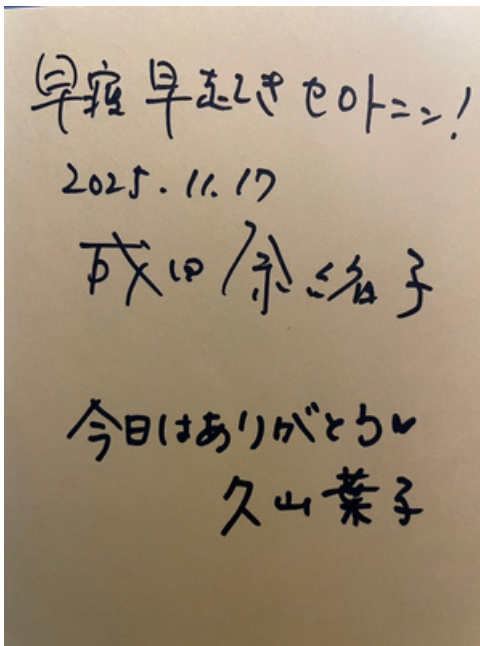 早寝早起きセロトニン!
2025.11.17
成田奈緒子
今日はありがとう♥
久山葉子